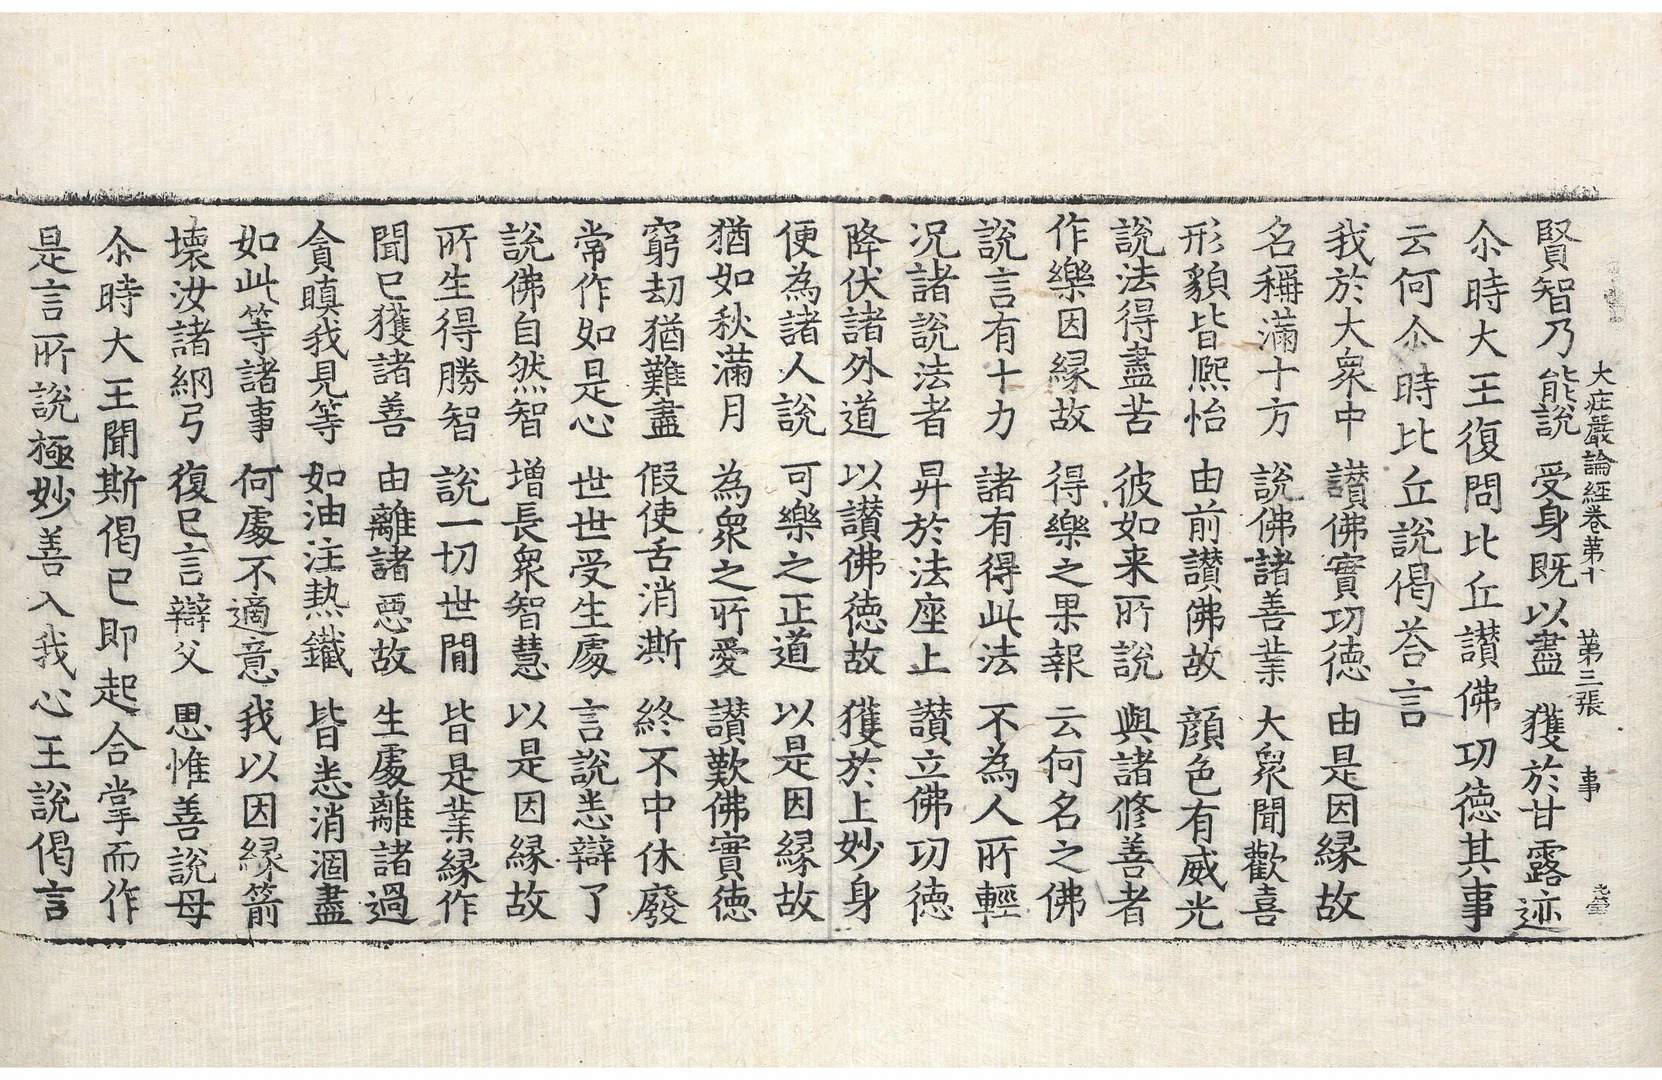 大莊嚴論經卷第十 第三張 事
賢智乃能說 受身既以盡 獲於甘露迹
尒時大王復問比丘讃佛功德其事
云何尒時比丘說偈荅言
我於大衆中 讃佛實功德 由是因縁故
名稱滿十方 說佛諸善業 大衆聞歡喜
形貌皆熈怡 由前讃佛故 顔色有威光
說法得盡苦 彼如来所說 與諸修善者
作樂因縁故 得樂之果報 云何名之佛
說言有十力 諸有得此法 不為人所輕
况諸說法者 昇於法座上 讃立佛功德
降伏諸外道 以讃佛德故 獲於上妙身
便為諸人說 可樂之正道 以是因縁故
猶如秋滿月 為衆之所愛 讃歎佛實德
窮劫猶難盡 假使舌消澌 終不中休廢
常作如是心 世世受生處 言說悉辯了
說佛自然智 增長衆智慧 以是因縁故
所生得勝智 說一切世間 皆是業縁作
聞已獲諸善 由離諸惡故 生處離諸過
貪瞋我見等 如油注熱鐵 皆悉消涸盡
如此等諸事 何處不適意 我以因縁箭
壞汝諸網弓 復已言辯父 思惟善說母
尒時大王聞斯偈已即起合掌而作
是言所說極妙善入我心王說偈言